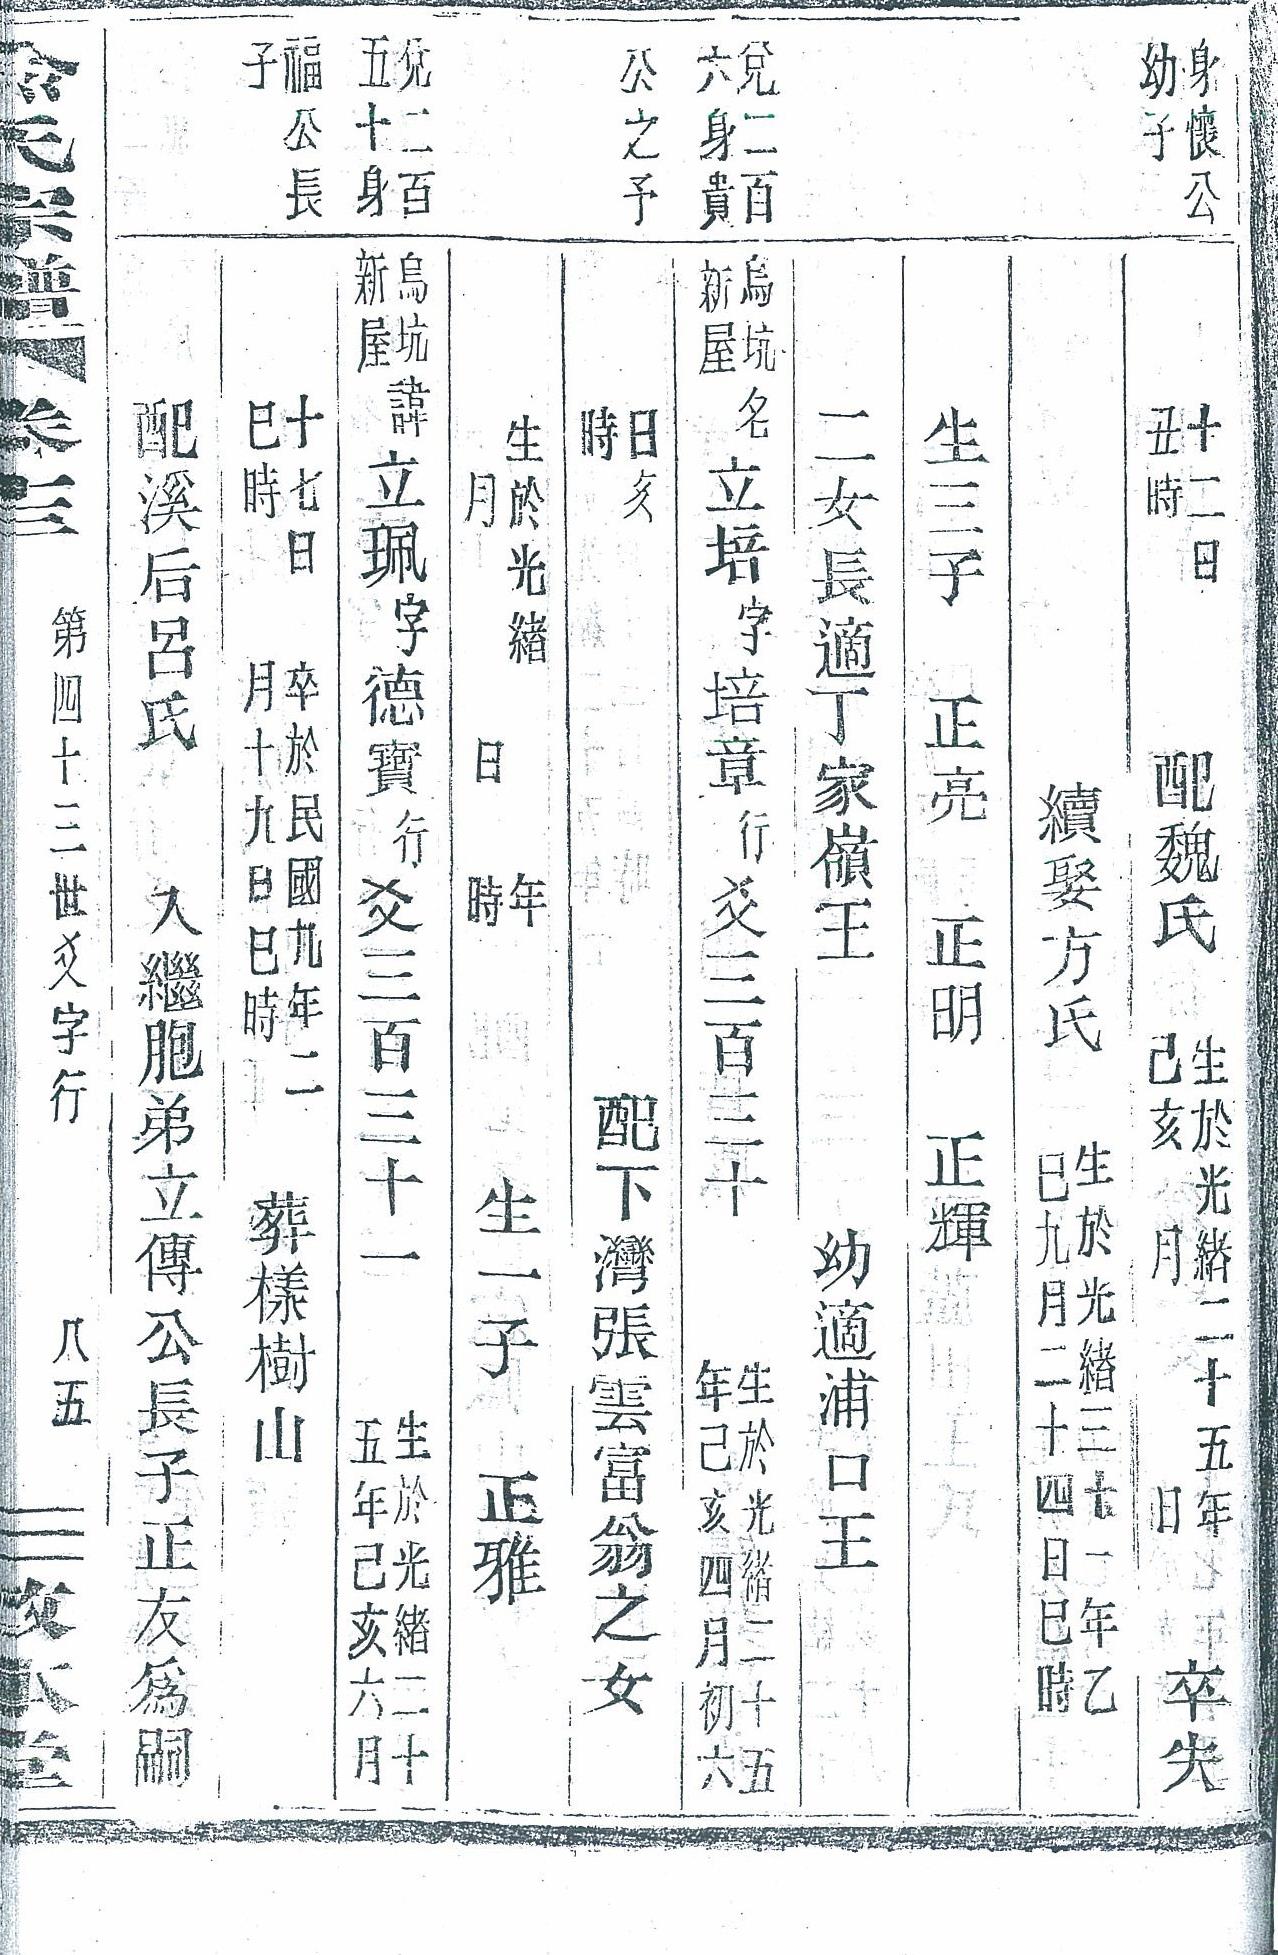 身懷公
幼子
十二日
丑時
配魏氏
生於光緒二十五年
己亥 月 日
卒失
續娶方氏
生於光緒三十一年乙
巳九月二十四日巳時
生三子 正亮 正明 正輝
二女長適丁家嶺王 幼適浦口王
兌二百
六身貴
烏坑
新屋
名立培字培章行爻三百三十
生於光緒二十五
年己亥四月初六
公之子
日亥
時
配下灣張雲富翁之女
生於光緒 年
月 日 時
生一子 正雅
兌二百
五十身
烏坑
新屋
諱立珮字德寶行爻三百三十一
生於光緒二十
五年己亥六月
福公長
子
十七日
巳時
卒於民國九年二
月十九日巳時
葬樣樹山
配溪后呂氏 入繼胞弟立傳公長子正友為嗣
氏宗譜 卷三 第四十三世爻字行 八五 堂